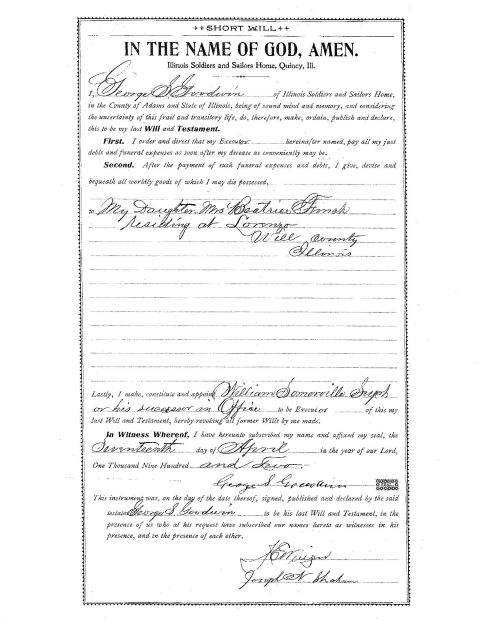 ++SHORT WILL++
IN THE NAME OF GOD, AMEN.
Illinois Soldiers and Sailors Home, Quincy, Ill.
I, George S Goodwin of Illinois Soldiers and Sailors Home,
in the County of Adams and State of Illinois, being of sound mind and memory, and considering
the uncertainty of this frail and transitory life, do, therefore, make, ordain, publish and declare,
this to be my last Will and Testament.
First. I order and direct that my Executor hereinafter named, pay all my just
debts and funeral expenses as soon after my decease as conveniently may be.
Second. After the payment of such funeral expenses and debts, I give, devise and
bequeath all worldly goods of which I may die possessed,
to My Daughter Mrs Beatrice
residing at Lorenzo
Will County
Illinois
Lastly, I make, constitute and appoint William Somerville Supt
or his successor in Office to be Executor of this my
last Will and Testament, hereby revoking all former Wills by me made.
In Witness Whereof, I have hereunto subscribed my name and affixed my seal, the
Seventeenth day of April in the year of our Lord,
One Thousand Nine Hundred and Two
George S Goodwin SEAL
This instrument was, on the day of the date thereof, signed, published and declared by the said
testator George S. Goodwin to be his last Will and Testament, in the
presence of us who at his request have subscribed our names hereto as witnesses in his
presence, and in the presence of each other.
Joseph N